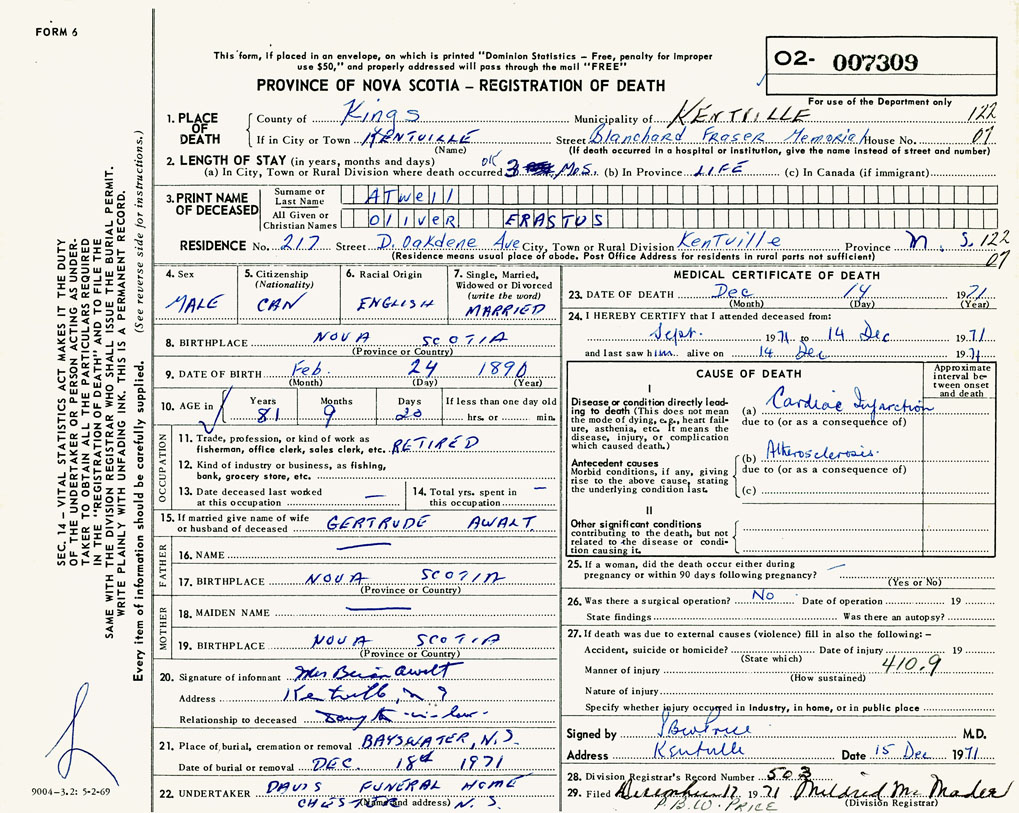 FORM 6
This form, if placed in an envelope, on which is printed "Dominion Statistics – Free, penalty for improper
use $50," and properly addressed will pass through the mail "FREE"
PROVINCE OF NOVA SCOTIA – REGISTRATION OF DEATH
02- 007309
For use of the Department only
1. PLACE OF DEATH
County of Kings Municipality of KENTVILLE 122
If in City or Town KENTVILLE Street Blanchard Fraser Memorial House No. 07
(Name) (If death occurred in a hospital or institution, give the name instead of street and number)
2. LENGTH OF STAY (in years, months and days)
(a) In City, Town or Rural Division where death occurred 3 Mos. (b) In Province LIFE (c) In Canada (if immigrant)
3. PRINT NAME OF DECEASED
Surname or Last Name ATwell
All Given or Christian Names Oliver ERASTUS
RESIDENCE No. 217 Street D. Oakdene Ave City, Town or Rural Division Kentville Province N. S. 122
(Residence means usual place of abode. Post Office Address for residents in rural parts not sufficient) 07
4. Sex MALE
5. Citizenship (Nationality) CAN
6. Racial Origin ENGLISH
7. Single, Married, Widowed or Divorced (write the word) MARRIED
8. BIRTHPLACE NOVA SCOTIA
(Province or Country)
9. DATE OF BIRTH Feb. 24 1890
(Month) (Day) (Year)
10. AGE in Years 81 Months 9 Days 20 If less than one day old hrs. or min.
OCCUPATION
11. Trade, profession, or kind of work as
fisherman, office clerk, sales clerk, etc. RETIRED
12. Kind of industry or business, as fishing,
bank, grocery store, etc.
13. Date deceased last worked at this occupation —
14. Total yrs. spent in this occupation —
15. If married give name of wife
or husband of deceased GERTRUDE AWALT
FATHER
16. NAME —
17. BIRTHPLACE NOVA SCOTIA
(Province or Country)
MOTHER
18. MAIDEN NAME —
19. BIRTHPLACE NOVA SCOTIA
(Province or Country)
20. Signature of informant Mrs Brian Awalt
Address Kentville, N S
Relationship to deceased Daughter-in-law
21. Place of burial, cremation or removal BAYSWATER, N.S.
Date of burial or removal DEC. 18th 1971
22. UNDERTAKER DAVIS FUNERAL HOME
(Name and address) CHESTER N. S.
MEDICAL CERTIFICATE OF DEATH
23. DATE OF DEATH Dec 14 1971
(Month) (Day) (Year)
24. I HEREBY CERTIFY that I attended deceased from:
Sept. 1971 to 14 Dec 1971
and last saw him alive on 14 Dec 1971
CAUSE OF DEATH
Approximate interval between onset and death
I
Disease or condition directly leading to death (This does not mean the mode of dying, e.g., heart failure, asthenia, etc. It means the disease, injury, or complication which caused death.)
(a) Cardiac Infarction
due to (or as a consequence of)
Antecedent causes
Morbid conditions, if any, giving rise to the above cause, stating the underlying condition last.
(b) Atherosclerosis.
due to (or as a consequence of)
(c)
II
Other significant conditions
contributing to the death, but not related to the disease or condition causing it.
25. If a woman, did the death occur either during
pregnancy or within 90 days following pregnancy? —
(Yes or No)
26. Was there a surgical operation? No Date of operation 19
State findings Was there an autopsy?
27. If death was due to external causes (violence) fill in also the following: –
Accident, suicide or homicide? Date of injury 19
(State which)
Manner of injury 410.9
(How sustained)
Nature of injury
Specify whether injury occurred in industry, in home, or in public place
Signed by M.D.
Address Kentville Date 15 Dec 1971
28. Division Registrar's Record Number 503
29. Filed December 17 1971 Mildred Mc Mader
P.B.W. PRICE (Division Registrar)
SEC. 14 – VITAL STATISTICS ACT MAKES IT THE DUTY
OF THE UNDERTAKER OR PERSON ACTING AS UNDER-
TAKER TO OBTAIN ALL THE PARTICULARS REQUIRED
IN THE "REGISTRATION OF DEATH" AND TO FILE THE
SAME WITH THE DIVISION REGISTRAR WHO SHALL ISSUE THE BURIAL PERMIT.
WRITE PLAINLY WITH UNFADING INK. THIS IS A PERMANENT RECORD.
Every item of information should be carefully supplied. (See reverse side for instructions.)
9004–3.2: 5-2-69